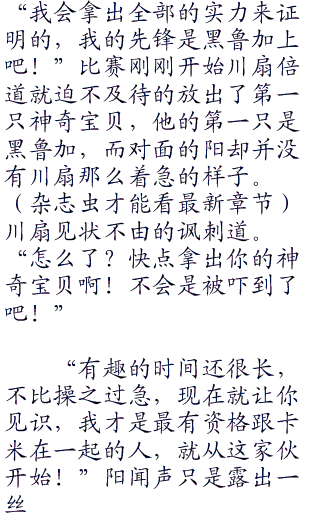 “我会拿出全部的实力来证
明的，我的先锋是黑鲁加上
吧！”比赛刚刚开始川扇倍
道就迫不及待的放出了第一
只神奇宝贝，他的第一只是
黑鲁加，而对面的阳却并没
有川扇那么着急的样子。
（杂志虫才能看最新章节）
川扇见状不由的讽刺道。
“怎么了？快点拿出你的神
奇宝贝啊！不会是被吓到了
吧！”
“有趣的时间还很长，
不比操之过急，现在就让你
见识，我才是最有资格跟卡
米在一起的人，就从这家伙
开始！”阳闻声只是露出一
丝